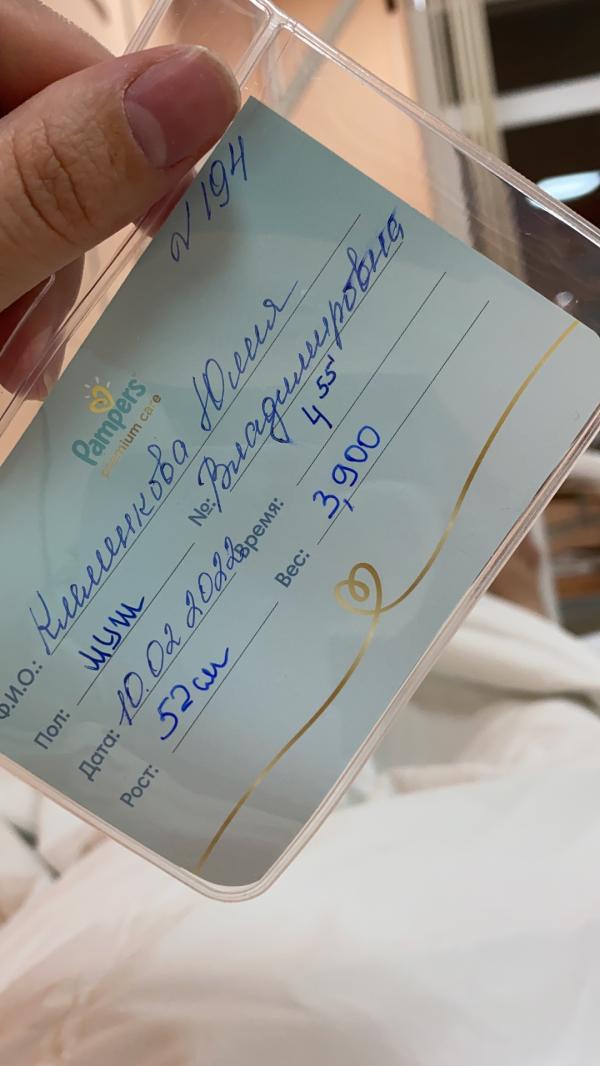 N 194
Pampers
premium care
Ф.И.О.: Клименкова Юлия
Владимировна
Пол: муж №:
Дата: 10.02.2022 Время: 4 55
Рост: 52 см Вес: 3,900